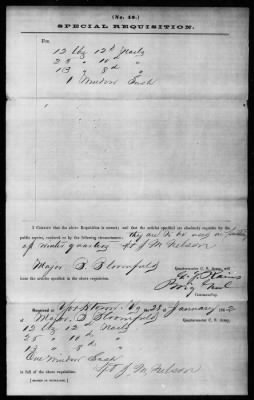 (No. 40.)
SPECIAL REQUISITION.
For
12 lbs 12d Nails
25 " 10d "
13 " 8d "
1 Window Sash
I CERTIFY that the above Requisition is correct; and that the articles specified are absolutely requisite for the
public service, rendered so by the following circumstances: they are to be used in
of winter quarters Lt J M Nelson
Quartermaster C. S. Army, will
Major B Bloomfield
issue the articles specified in the above requisition.
Brig Genl
Commanding.
RECEIVED at Yorktown Va 28 of January 1862
of Major B Bloomfield Quartermaster C. S. Army,
12 lbs 12d Nails
25 " 10d "
13 " 8d "
One Window Sash
in full of the above requisition. Lt J. M. Nelson